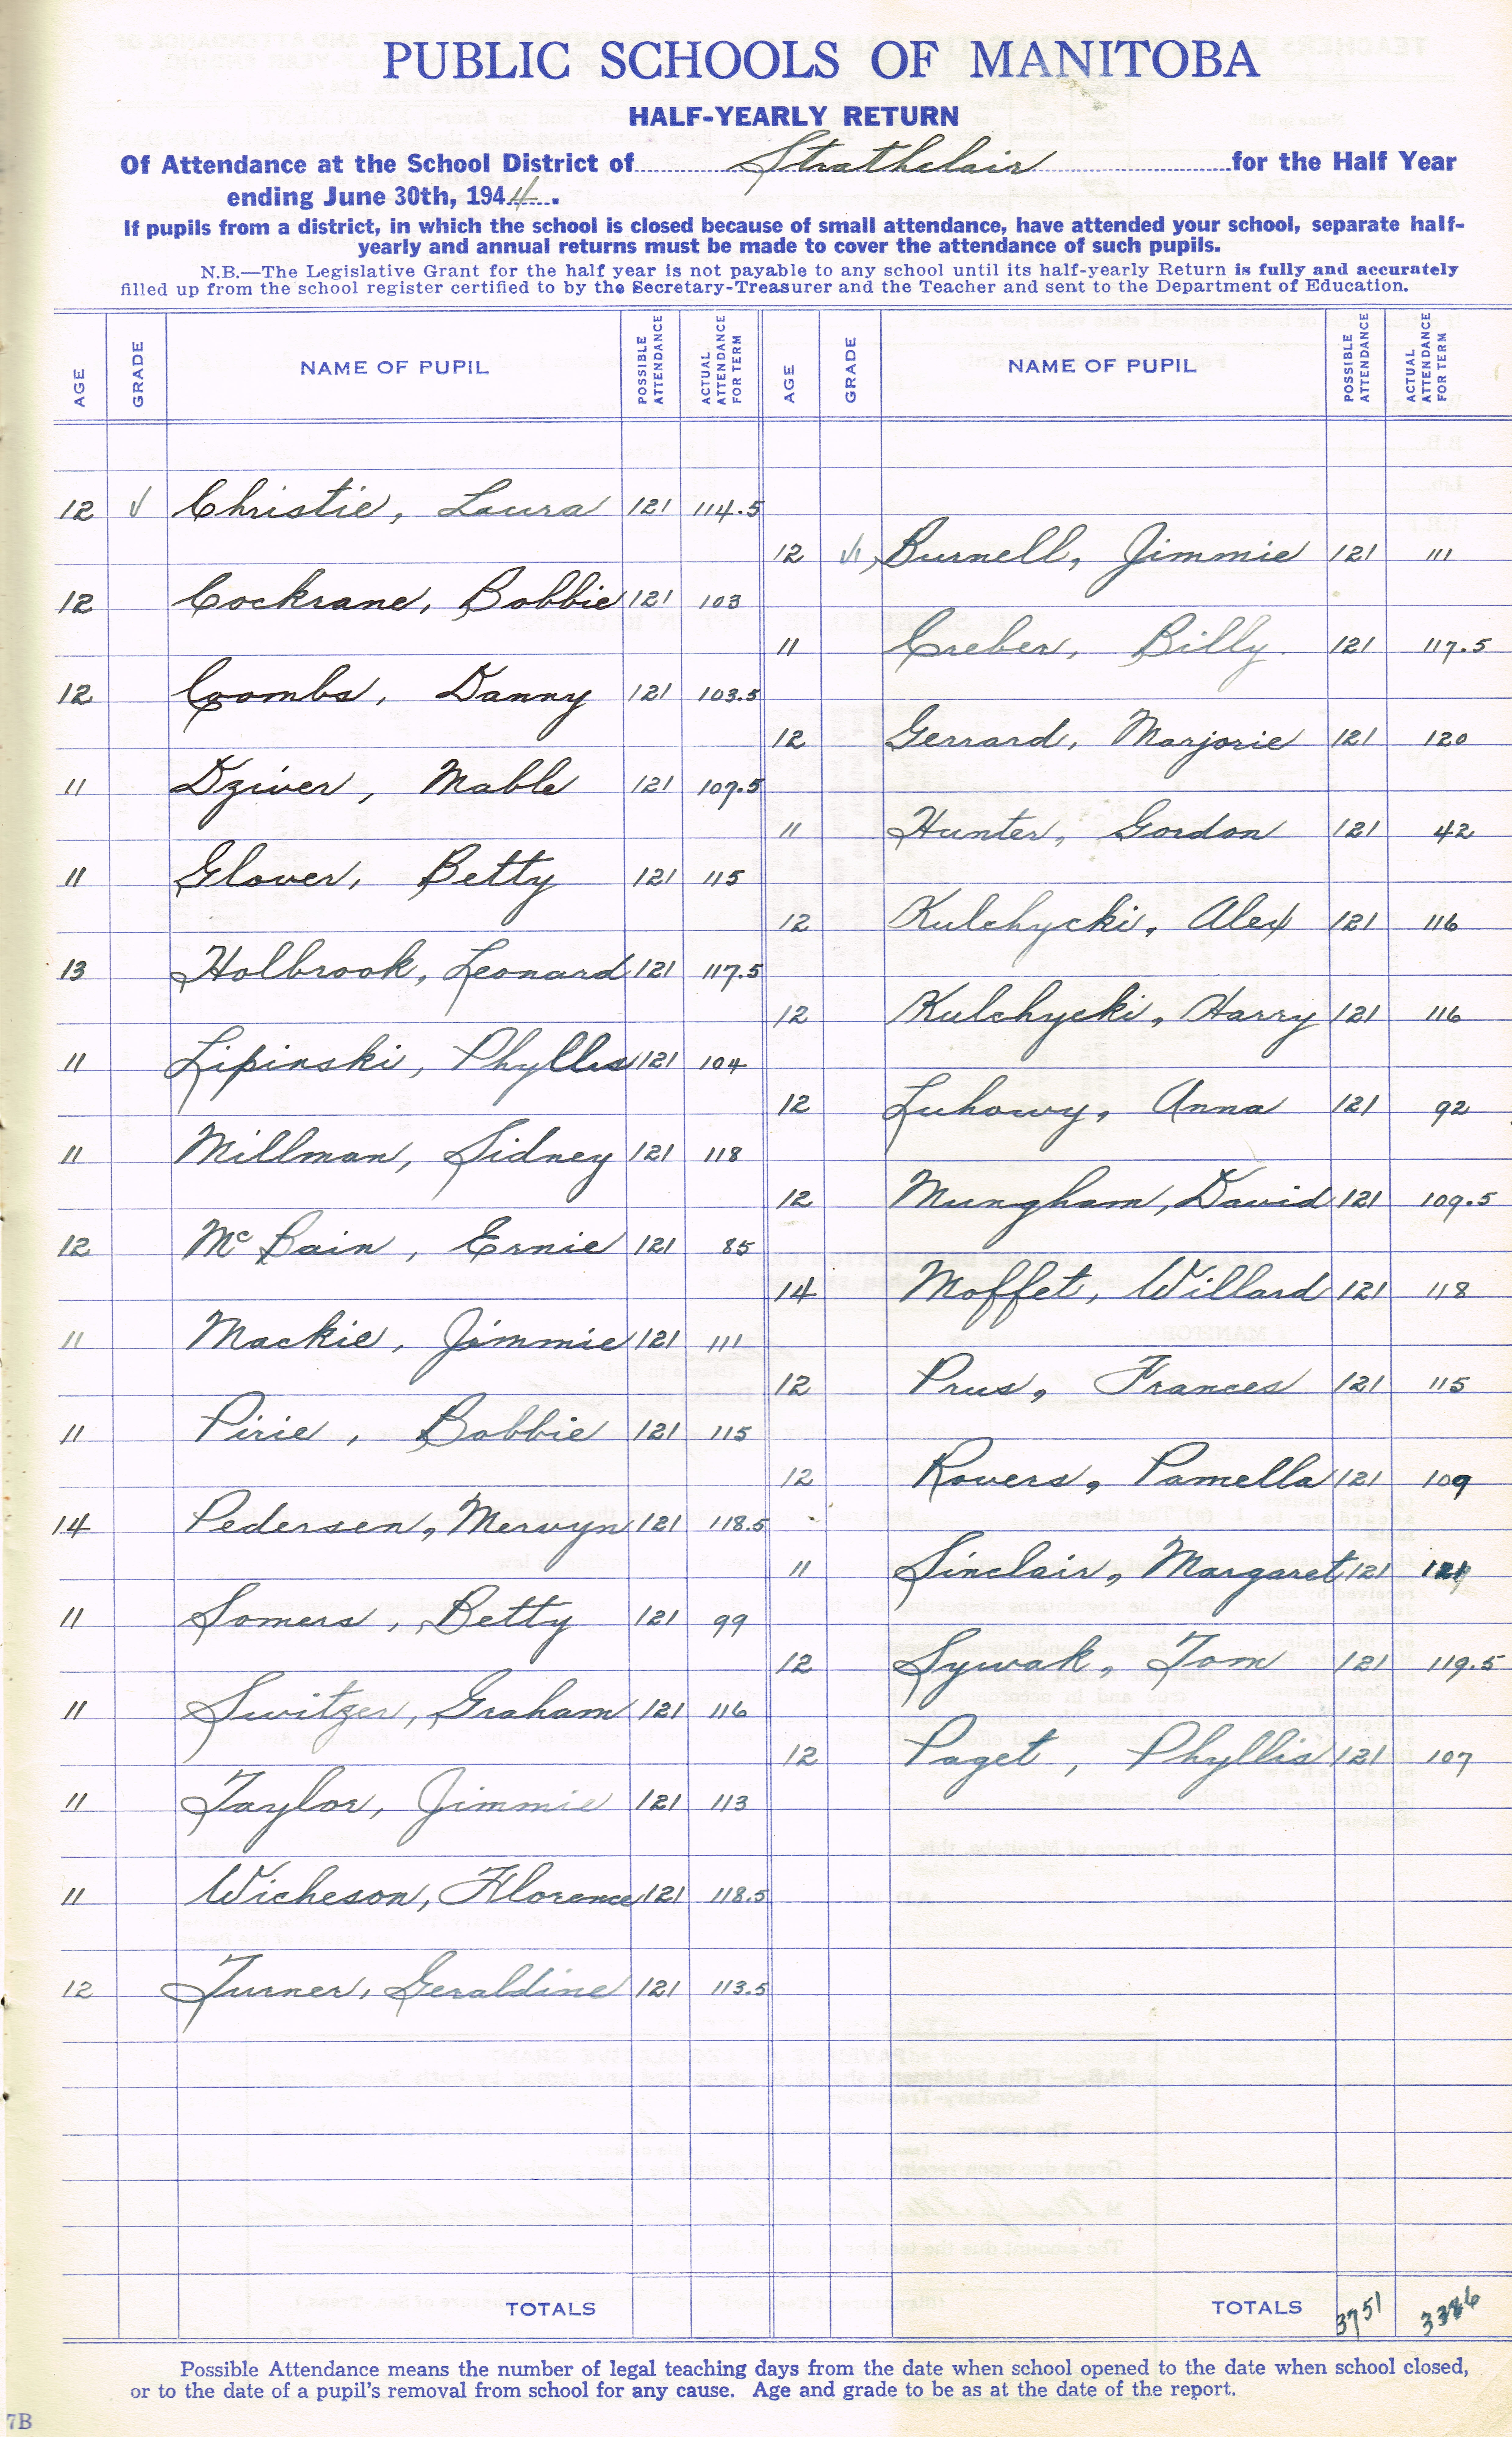 PUBLIC SCHOOLS OF MANITOBA
HALF-YEARLY RETURN
Of Attendance at the School District of Strathclair for the Half Year
ending June 30th, 1944.
If pupils from a district, in which the school is closed because of small attendance, have attended your school, separate half-
yearly and annual returns must be made to cover the attendance of such pupils.
N.B.—The Legislative Grant for the half year is not payable to any school until its half-yearly Return is fully and accurately
filled up from the school register certified to by the Secretary-Treasurer and the Teacher and sent to the Department of Education.
AGE GRADE NAME OF PUPIL POSSIBLE ATTENDANCE ACTUAL ATTENDANCE FOR TERM AGE GRADE NAME OF PUPIL POSSIBLE ATTENDANCE ACTUAL ATTENDANCE FOR TERM
12 V Christie, Laura 121 114.5
12 Cockrane, Bobbie 121 103
12 Coombs, Danny 121 103.5
11 Dziver, Mable 121 107.5
11 Glover, Betty 121 115
13 Holbrook, Leonard 121 117.5
11 Lipinski, Phyllis 121 104
11 Millman, Sidney 121 118
12 McBain, Ernie 121 85
11 Mackie, Jimmie 121 111
11 Pirie, Bobbie 121 115
14 Pedersen, Mervyn 121 118.5
11 Somers, Betty 121 99
11 Switzer, Graham 121 116
11 Taylor, Jimmie 121 113
11 Wicheson, Florence 121 118.5
12 Turner, Geraldine 121 113.5
TOTALS
12 VI Burnell, Jimmie 121 111
11 Creber, Billy 121 117.5
12 Gerrard, Marjorie 121 120
11 Hunter, Gordon 121 42
12 Kulchycki, Alex 121 116
12 Kulchycki, Harry 121 116
12 Luhowy, Anna 121 92
12 Mungham, David 121 109.5
14 Moffet, Willard 121 118
12 Prus, Frances 121 115
12 Rovers, Pamella 121 109
11 Sinclair, Margaret 121 121
12 Sywak, Tom 121 119.5
12 Paget, Phyllis 121 107
TOTALS 3751
Possible Attendance means the number of legal teaching days from the date when school opened to the date when school closed,
or to the date of a pupil's removal from school for any cause. Age and grade to be as at the date of the report.
7B